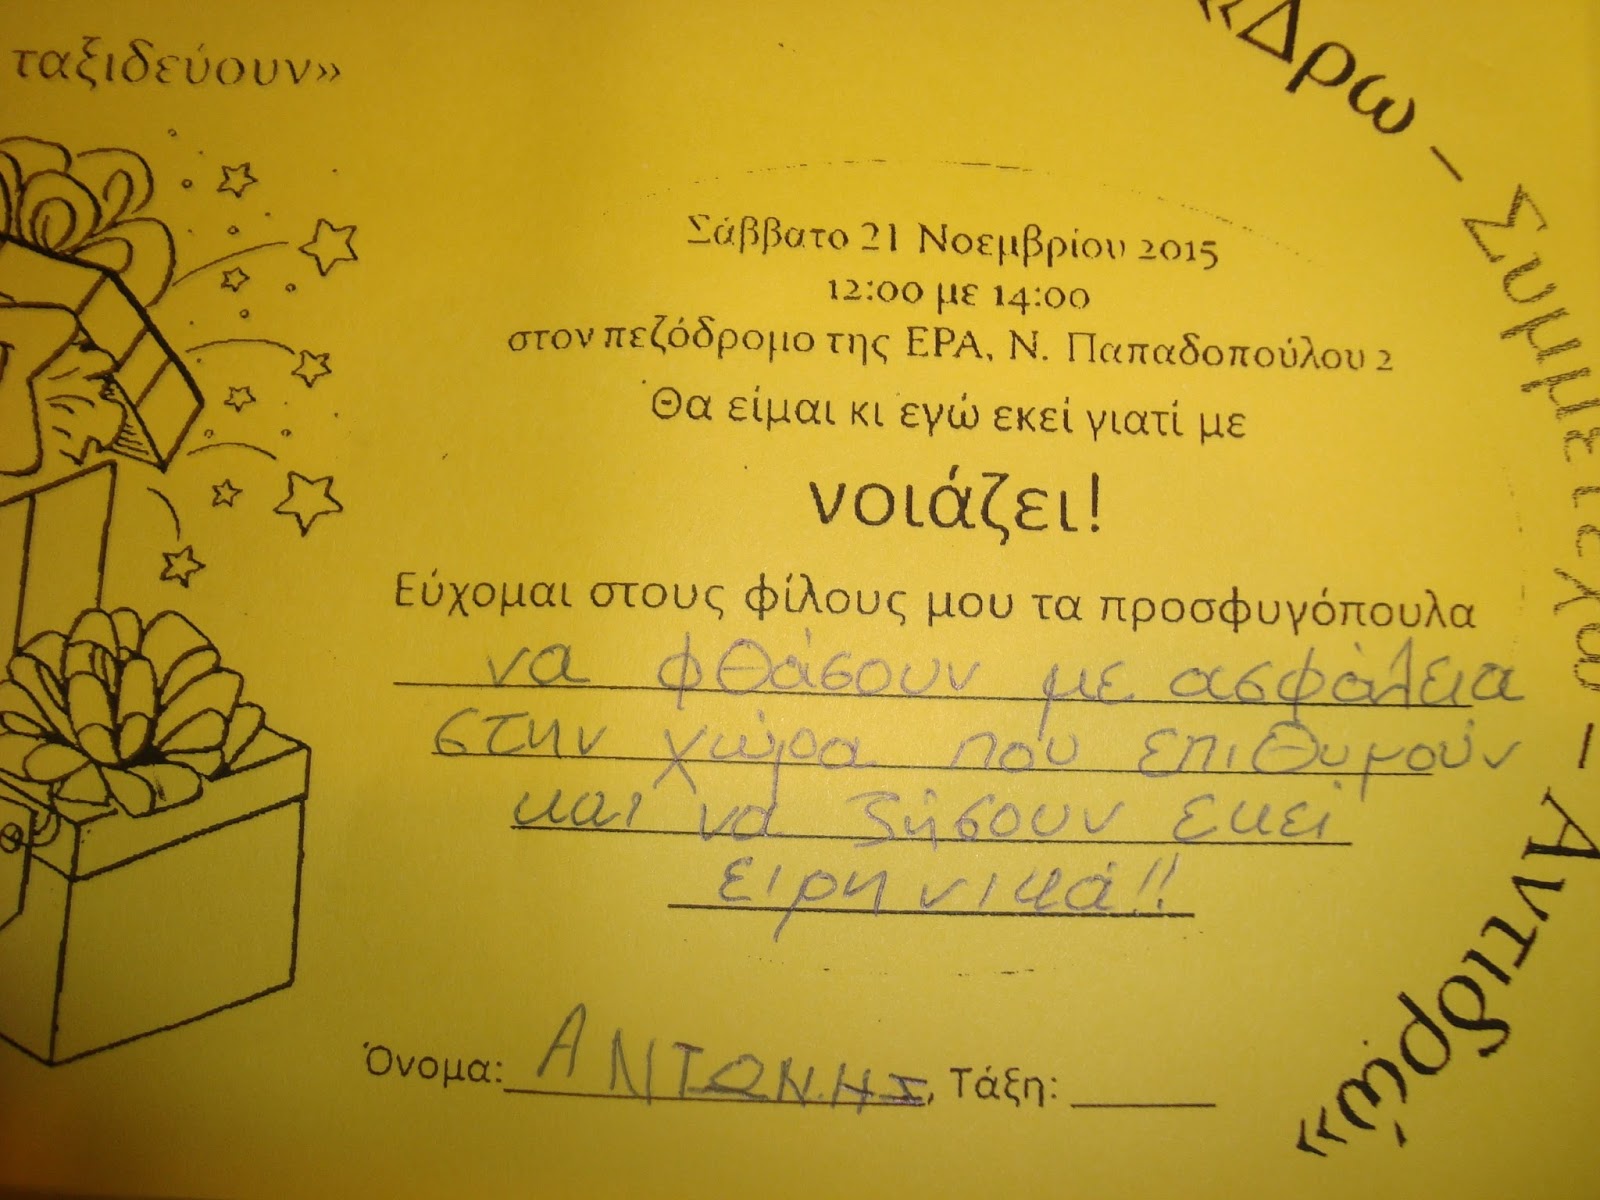 ταξιδεύουν»
«Δρω – Συμμετέχω – Αντιδρώ»
Σάββατο 21 Νοεμβρίου 2015
12:00 με 14:00
στον πεζόδρομο της ΕΡΑ, Ν. Παπαδοπούλου 2
Θα είμαι κι εγώ εκεί γιατί με
νοιάζει!
Εύχομαι στους φίλους μου τα προσφυγόπουλα
να φθάσουν με ασφάλεια
στην χώρα που επιθυμούν
και να ζήσουν εκεί
ειρηνικά!!
Όνομα: ΑΝΤΩΝΗΣ, Τάξη: